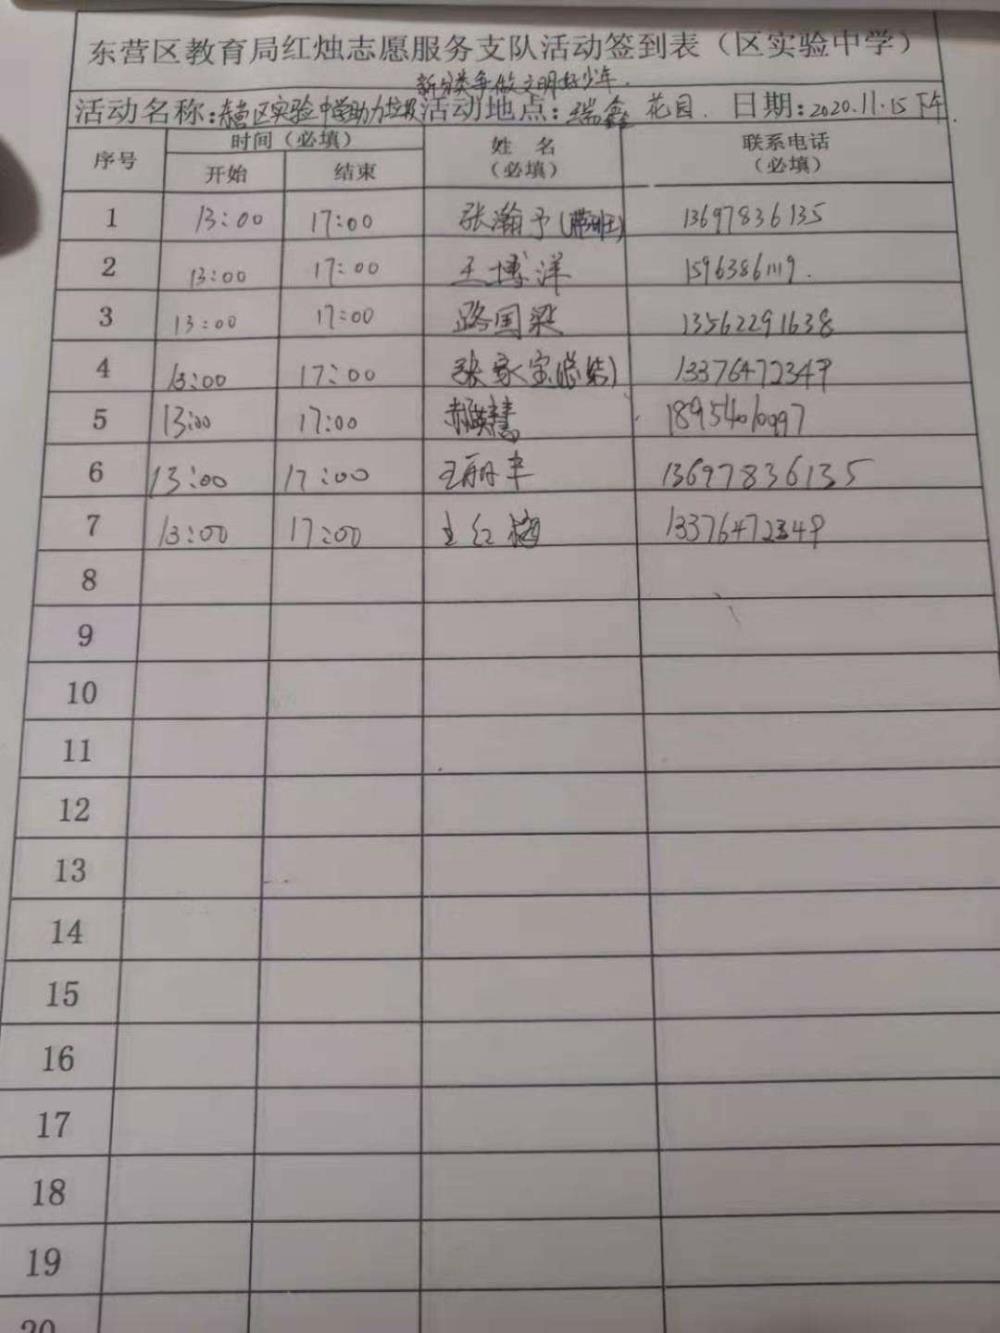 东营区教育局红烛志愿服务支队活动签到表（区实验中学）
新分类争做文明好少年.
活动名称:东营区实验中学助力垃圾 活动地点:瑞鑫花园. 日期:2020.11.15下午.
序号 时间（必填） 姓 名（必填） 联系电话（必填）
开始 结束
1 13:00 17:00 张瀚予(带班) 13697836135
2 13:00 17:00 王博洋 15963861119.
3 13:00 17:00 路国梁 13562291638
4 13:00 17:00 张家宝(总结) 13376472349
5 13:00 17:00 18954010097
6 13:00 17:00 王丽丰 13697836135
7 13:00 17:00 王红梅 13376472349
8
9
10
11
12
13
14
15
16
17
18
19
20